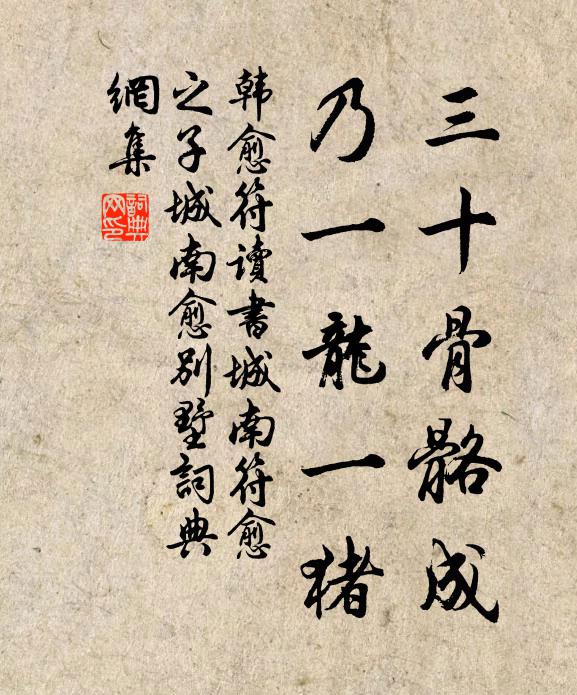 三十骨骼成
乃一龍一猪
韩愈符讀書城南符愈
之子城南愈别墅詞典
網集
詞典
网印